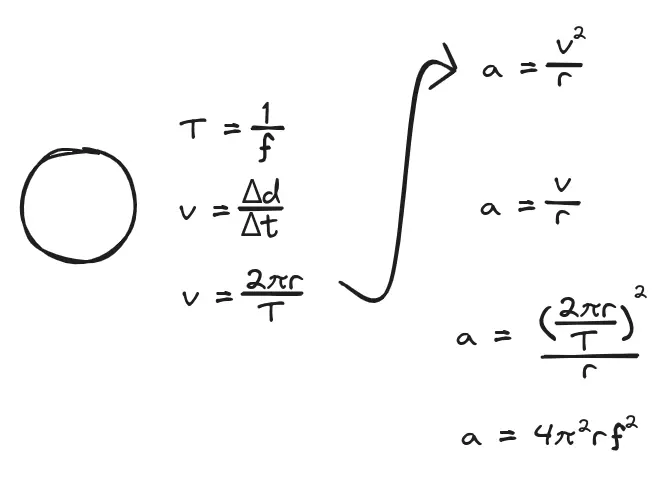 T = 1/f
v = Δd/Δt
v = 2πr/T
a = v²/r
a = v/r
a = (2πr/T)²/r
a = 4π²rf²